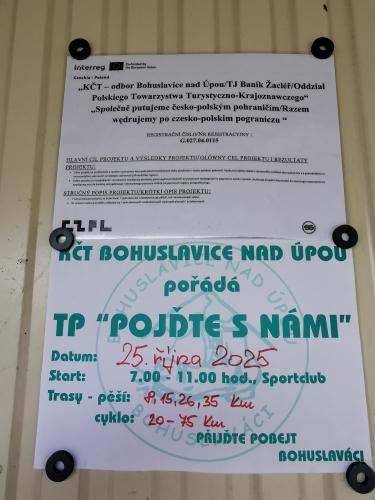 interreg
Co-funded by
the European Union
Czechia - Poland
„KČT – odbor Bohuslavice nad Úpou/TJ Baník Žacléř/Oddział
Polskiego Towarzystwa Turystyczno-Krajoznawczego"
„Společně putujeme česko-polským pohraničím/Razem
wędrujemy po czesko-polskim pograniczu "
REGISTRAČNÍ ČÍSLO/NR REJESTRACYJNY :
G.027.04.0115
HLAVNÍ CÍL PROJEKTU A VÝSLEDKY PROJEKTU/GŁÓWNY CEL PROJEKTU I REZULTATY
PROJEKTU:
STRUČNÝ POPIS PROJEKTU/KRÓTKI OPIS PROJEKTU:
CZPL
KČT BOHUSLAVICE NAD ÚPOU
pořádá
TP "POJĎTE S NÁMI"
Datum: 25. října 2025
Start: 7.00 - 11.00 hod., Sportclub
Trasy - pěší: 8,15,26,35 Km
cyklo: 20-75 Km
PŘIJĎTE POBEJT
BOHUSLAVÁCI
BOHUSLAVICE NAD ÚPOU
BOHUSLAVÁCI